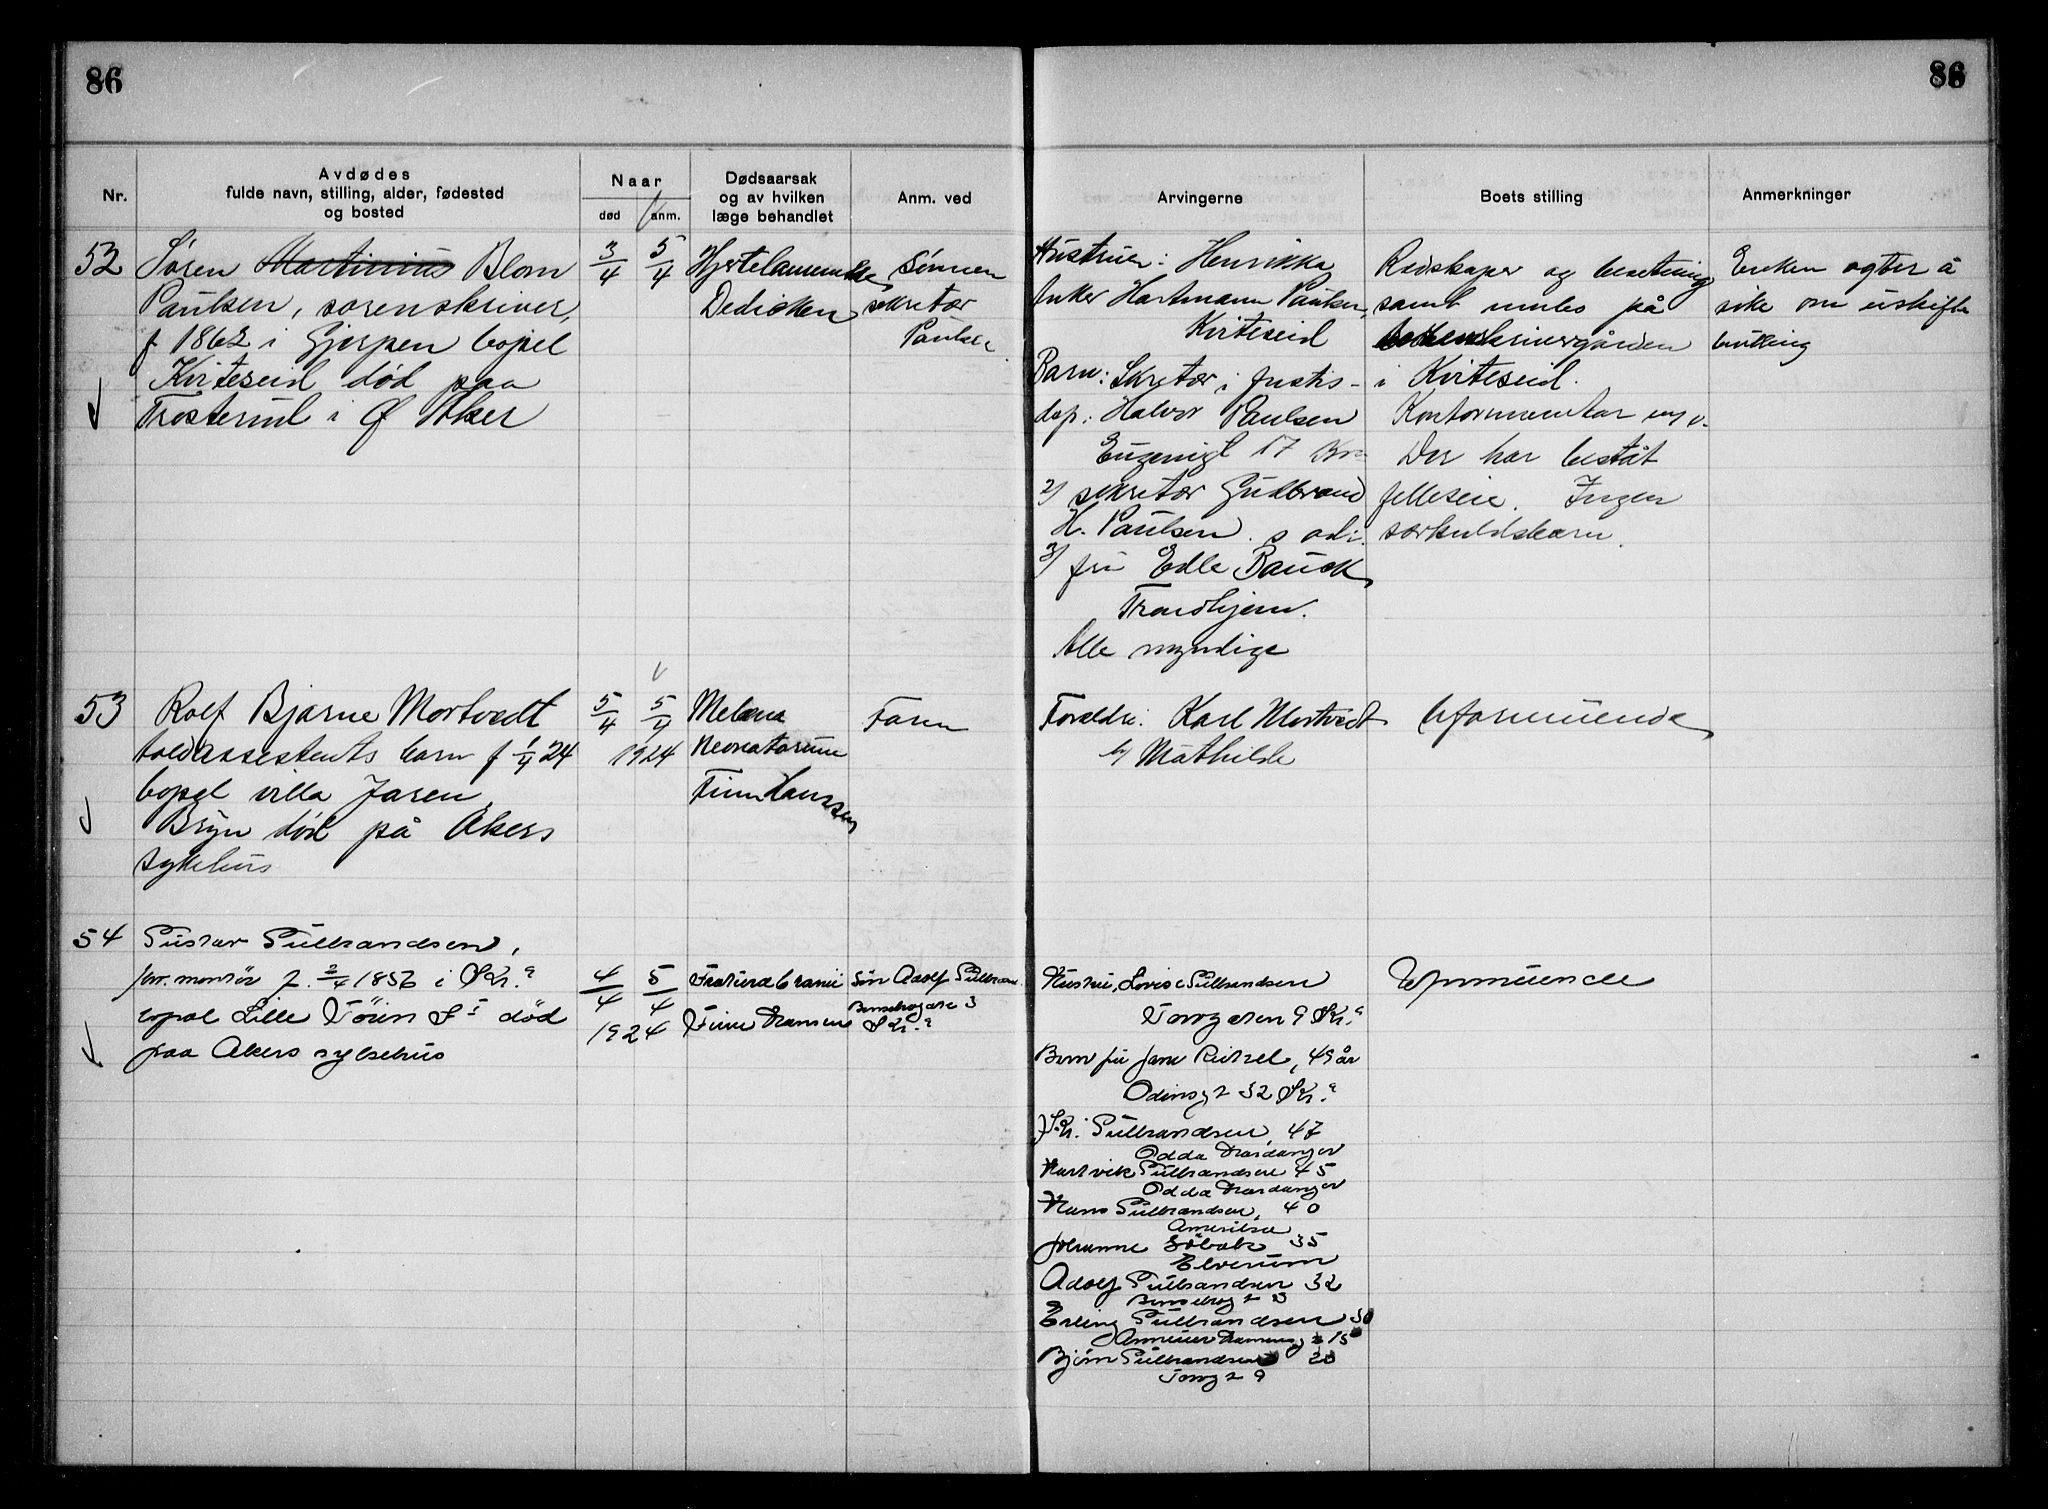 86
86
Nr.
Avdødes
fulde navn, stilling, alder, fødested
og bosted
Naar
død
anm.
Dødsaarsak
og av hvilken
læge behandlet
Anm. ved
Arvingerne
Boets stilling
Anmerkninger
52
Søren Martinius Blom
Paulsen, sorenskriver,
f 1862 i Gjerpen bopel
Kviteseid død paa
Trosterud i Ø Aker
3/4
5/4
Hjertelammelse
Dedichen
Sønnen
sekretær
Paulsen
Hustruen: Henrikka
Inker Hartmann Paulsen,
Kviteseid
Barn: Sekretær i Justis-
dep: Halvor Paulsen
Eugenigt 17 Kr
2) sekretær Gudbrand
H. Paulsen s adr.
3) fru Edle Bauck
Trondhjem.
Alle myndige
Redskaper og besetning
samt innbo på
sorenskrivergården
i Kviteseid.
Kontorinventar
Der har bestått
felleseie. Ingen
særkuldsbarn.
Enken agter å
sike om uskifte
bevilling
53
Rolf Bjarne Mortvedt
toldassistents barn f 1/4 24
bopel villa Jaren
Bryn død på Akers
sykehus
5/4
5/4
1924
Melæna
Neonatorum
Finn Hanssen
Faren
Foreldre: Karl Mortvedt
Mathilde
Uformuende
54
Gustav Gulbrandsen,
forr. montør f. 2/4 1856 i Kr.a
bopæl Lille Tøien død
paa Akers sykehus
4/4
5/4
1924
Fractura Cranii
Finn Hansen
Søn Adolf Gulbrand
3
Kr.a
Hustru, Lovise Gulbrandsen
9 Kr.a
Barn fru Jane Reitzel, 49 år
Odinsgt 32 Kr.a
Gulbrandsen, 47
Odda Hardanger
Hartvik Gulbrandsen 45
Odda Hardanger
Hans Gulbrandsen, 40
Amerika
Johanne 35
Elverum
Adolf Gulbrandsen 32
3
Erling Gulbrandsen 30
15
Bjørn Gulbrandsen 20
9
Uformuende